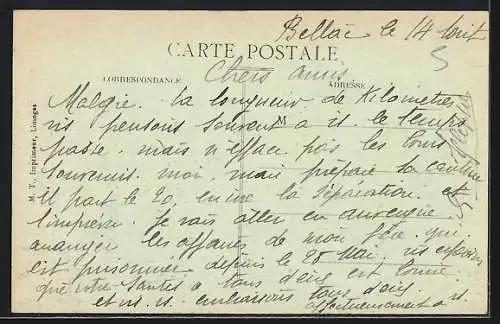 Bellac le 14 Août
CARTE POSTALE
Chers amis
CORRESPONDANCE
ADRESSE
Malgré la longueur de Kilometres
ns pensons souvent a il le temps
M
passe mais n'efface pas les bons
souvenirs moi, mari prépare sa
il part le 20, encore la séparation et
l'imprévu Je vais aller en auvergne
arranger les affaires de mon frère qui
est prisonnier depuis le 25 Mai, ns espérons
que votre santés a tous deux est bonne
et ns. ns. embrassons tous deux
affectueusement a
M. T., Imprimeur, Limoges